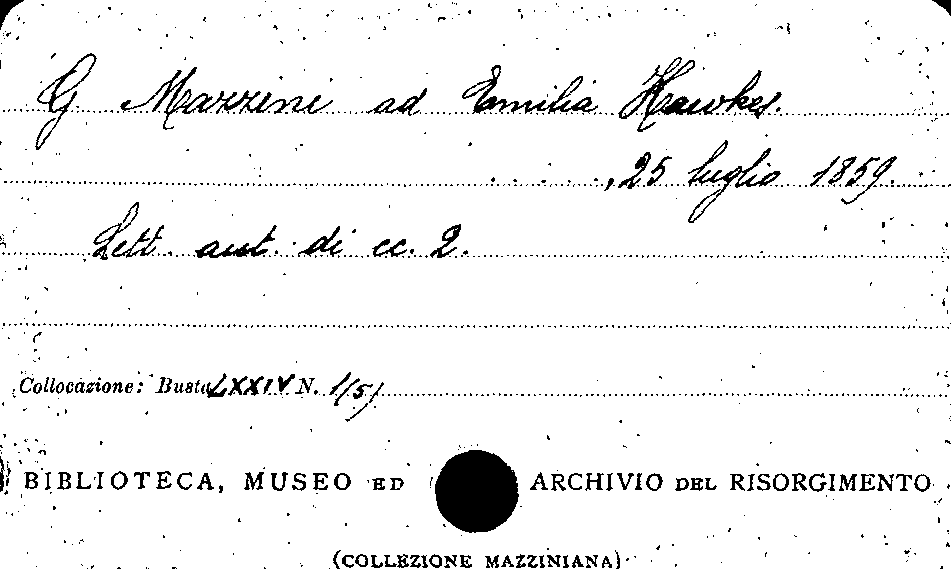 G Mazzini ad Emilia Hawkes.
. . . . . . , 25 luglio 1859.
Lett. aut. di cc. 2.
Collocazione: Busta LXXIV N. 1/5/
BIBLIOTECA, MUSEO ED ARCHIVIO DEL RISORGIMENTO
(COLLEZIONE MAZZINIANA)